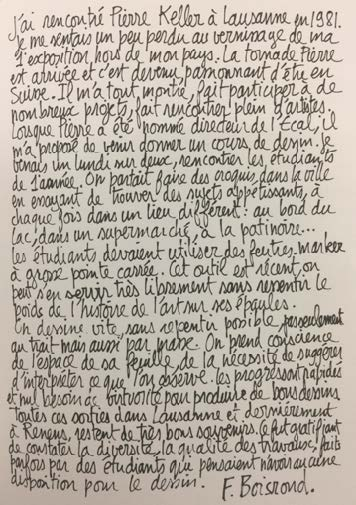 J'ai rencontré Pierre Keller à Lausanne en 1981.
Je me sentais un peu perdu au vernissage de ma
1° exposition hors de mon pays. La tornade Pierre
est arrivée et c'est devenu passionnant d'être en
Suisse. Il m'a tout montré, fait participer à de
nombreux projets, fait rencontrer plein d'artistes.
Lorsque Pierre a été nommé directeur de l'Ecal, il
m'a proposé de venir donner un cours de dessin. Je
venais un lundi sur deux, rencontrer les étudiants
de 1°année. On partait faire des croquis dans la ville
en essayant de trouver des sujets appétissants, à
chaque fois dans un lieu différent : au bord du
lac, dans un supermarché, à la patinoire...
les étudiants devaient utiliser des feutres marker
à grosse pointe carrée. Cet outil est récent, on
peut s'en servir très librement sans ressentir le
poids de l'histoire de l'art sur ses épaules.
On dessine vite, sans repentir possible, pas seulement
au trait mais aussi par masse. On prend conscience
de l'espace de sa feuille, de la nécessité de suggérer
d'interpréter ce que l'on observe. les progrès sont rapides
et nul besoin de virtuosité pour produire de bons dessins
Toutes ces sorties dans Lausanne et dernièrement
à Renens, restent de très bons souvenirs. le fut gratifiant
de constater la diversité, la qualité des travaux, faits
parfois par des étudiants qui pensaient n'avoir aucune
disposition pour le dessin. F. Boisrond.